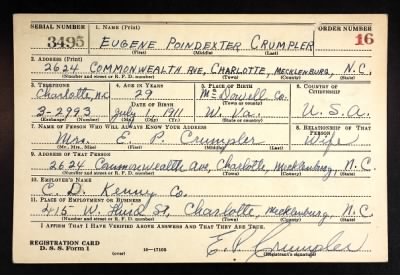 SERIAL NUMBER 1. NAME (Print) ORDER NUMBER
3495 EUGENE POINDEXTER CRUMPLER 16
(First) (Middle) (Last)
2. ADDRESS (Print)
2624 COMMONWEALTH AVE, CHARLOTTE, MECKLENBURG, N.C.
(Number and street or R. F. D. number) (Town) (County) (State)
3. TELEPHONE 4. AGE IN YEARS 5. PLACE OF BIRTH 6. COUNTRY OF CITIZENSHIP
Charlotte, N.C. 29 McDowell Co.
DATE OF BIRTH (Town or county)
3-2993 July 1911 W. Va. U.S.A.
(Mo.) (Day) (Yr.) (State or country)
7. NAME OF PERSON WHO WILL ALWAYS KNOW YOUR ADDRESS 8. RELATIONSHIP OF THAT PERSON
Mrs. E. P. Crumpler Wife
(Mr., Mrs., Miss) (First) (Middle) (Last)
9. ADDRESS OF THAT PERSON
2624 Commonwealth Ave, Charlotte, Mecklenburg, N.C.
(Number and street or R. F. D. number) (Town) (County) (State)
10. EMPLOYER'S NAME
C. D. Kenny Co.
11. PLACE OF EMPLOYMENT OR BUSINESS
415 W. St, Charlotte, Mecklenburg, N.C.
(Number and street or R. F. D. number) (Town) (County) (State)
I AFFIRM THAT I HAVE VERIFIED ABOVE ANSWERS AND THAT THEY ARE TRUE.
REGISTRATION CARD
D. S. S. Form 1 16-17105 E P Crumpler
(over) (Registrant's signature)